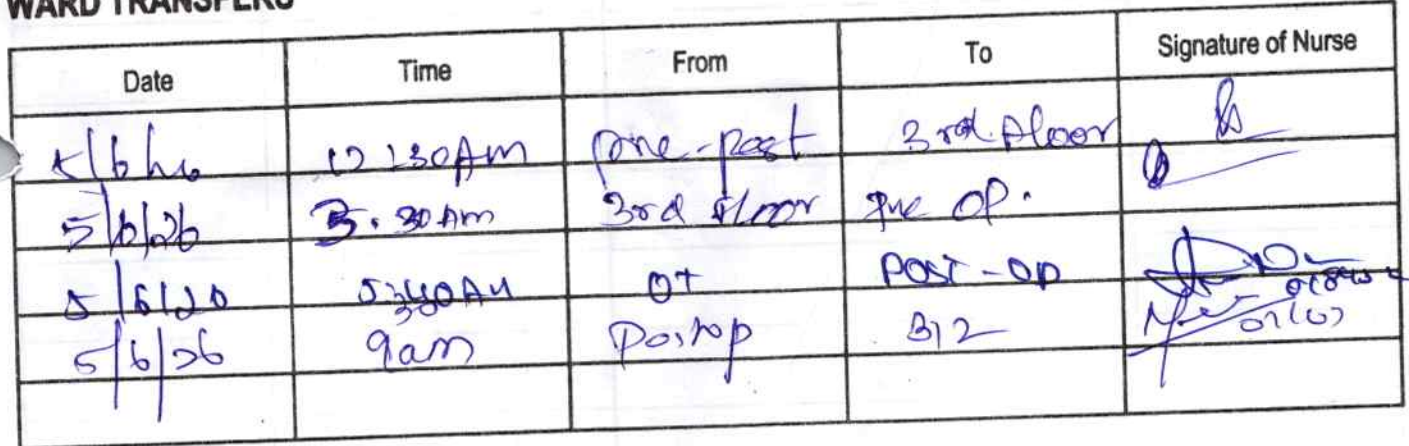 WARD TRANSFERS
Date Time From To Signature of Nurse
12:30AM pre-post 3rd floor
5/6/26 3.30 AM 3rd floor pre OP.
5:40AM OT POST-OP
5/6/26 9am Postop 312